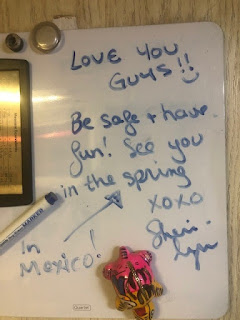 LOVE YOU
GUYS!!
Be safe + have
fun! See you
in the spring
xoxo
Sheri-
Lyn
In
Mexico!
MARKER